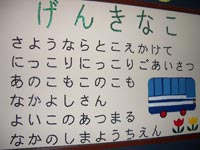 げんきなこ
さようならとこえかけて
にっこりにっこりごあいさつ
あのこもこのこも
なかよしさん
よいこのあつまる
なかのしまようちえん